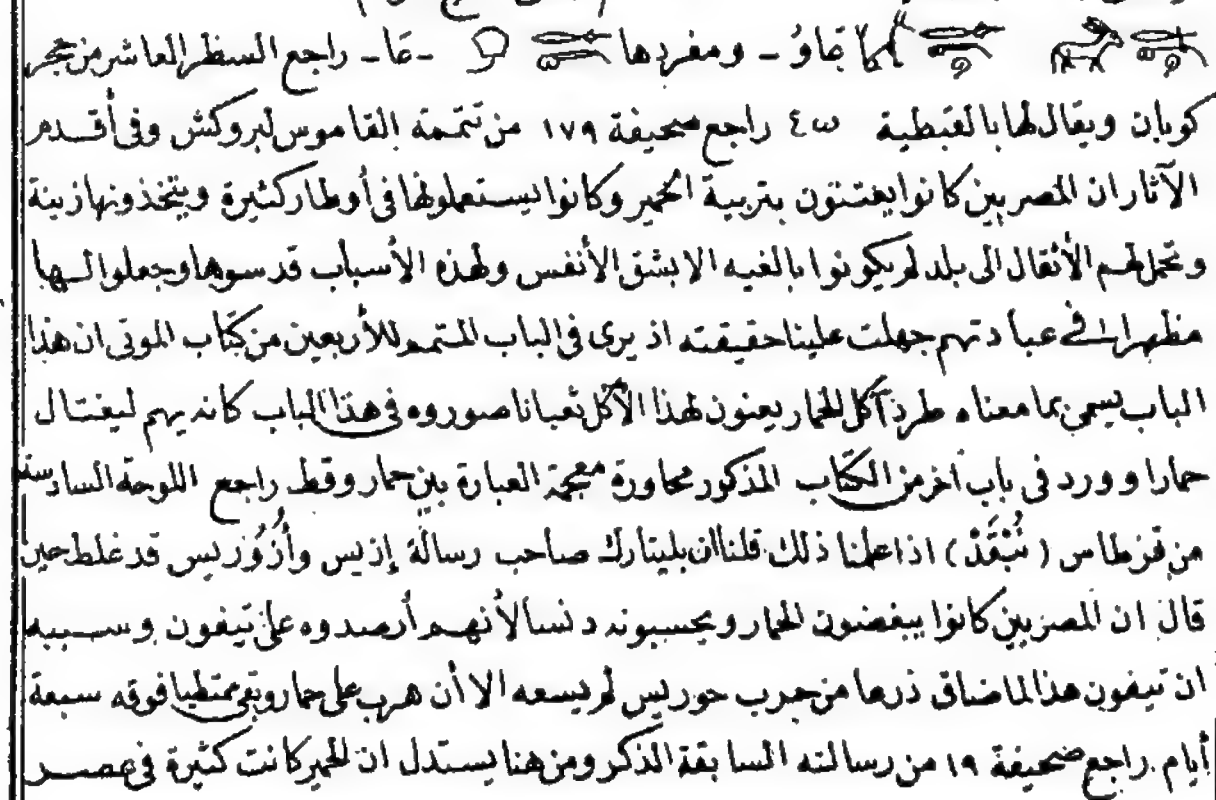 عَاوُ - ومفردها - عَا - راجع السطر العاشر من حجر
كوبان ويقال لها بالقبطية ⲉⲱ راجع صحيفة ١٧٩ من تتمة القاموس لبروكش وفى أقدم
الآثار ان المصريين كانوا يعتنون بتربية الحمير وكانوا يستعملونها فى أوطار كثيرة ويتخذونها زينة
وتحمل لهم الأثقال الى بلد لم يكونوا بالغيه الا بشق الأنفس ولهذه الأسباب قدسوها وجعلوا لها
مظهرا فى عبادتهم جهلت علينا حقيقته اذ يرى فى الباب المتمم للأربعين من كتاب الموتى ان هذا
الباب يسمى بما معناه طرد آكل الحمار يعنون لهذا الآكل ثعبانا صوروه فى هذا الباب كانه يهم ليغتال
حمارا وورد فى باب آخر من الكتاب المذكور محاورة معجمة العبارة بين حمار وقط راجع اللوحة السادسة
من قرطاس (نُبْقَدْ) اذا علمنا ذلك قلنا ان بليتارك صاحب رسالة إزيس وأُزُوريس قد غلط حين
قال ان المصريين كانوا يبغضون الحمار ويحسبونه دنسا لأنهم أرصدوه على تيفون وسببه
ان تيفون هذا لما ضاق ذرعا من حرب حوريس لم يسعه الا أن هرب على حمار وبقى ممتطيا فوقه سبعة
أيام . راجع صحيفة ١٩ من رسالته السابقة الذكر ومن هنا يستدل ان الحمير كانت كثيرة فى عصر